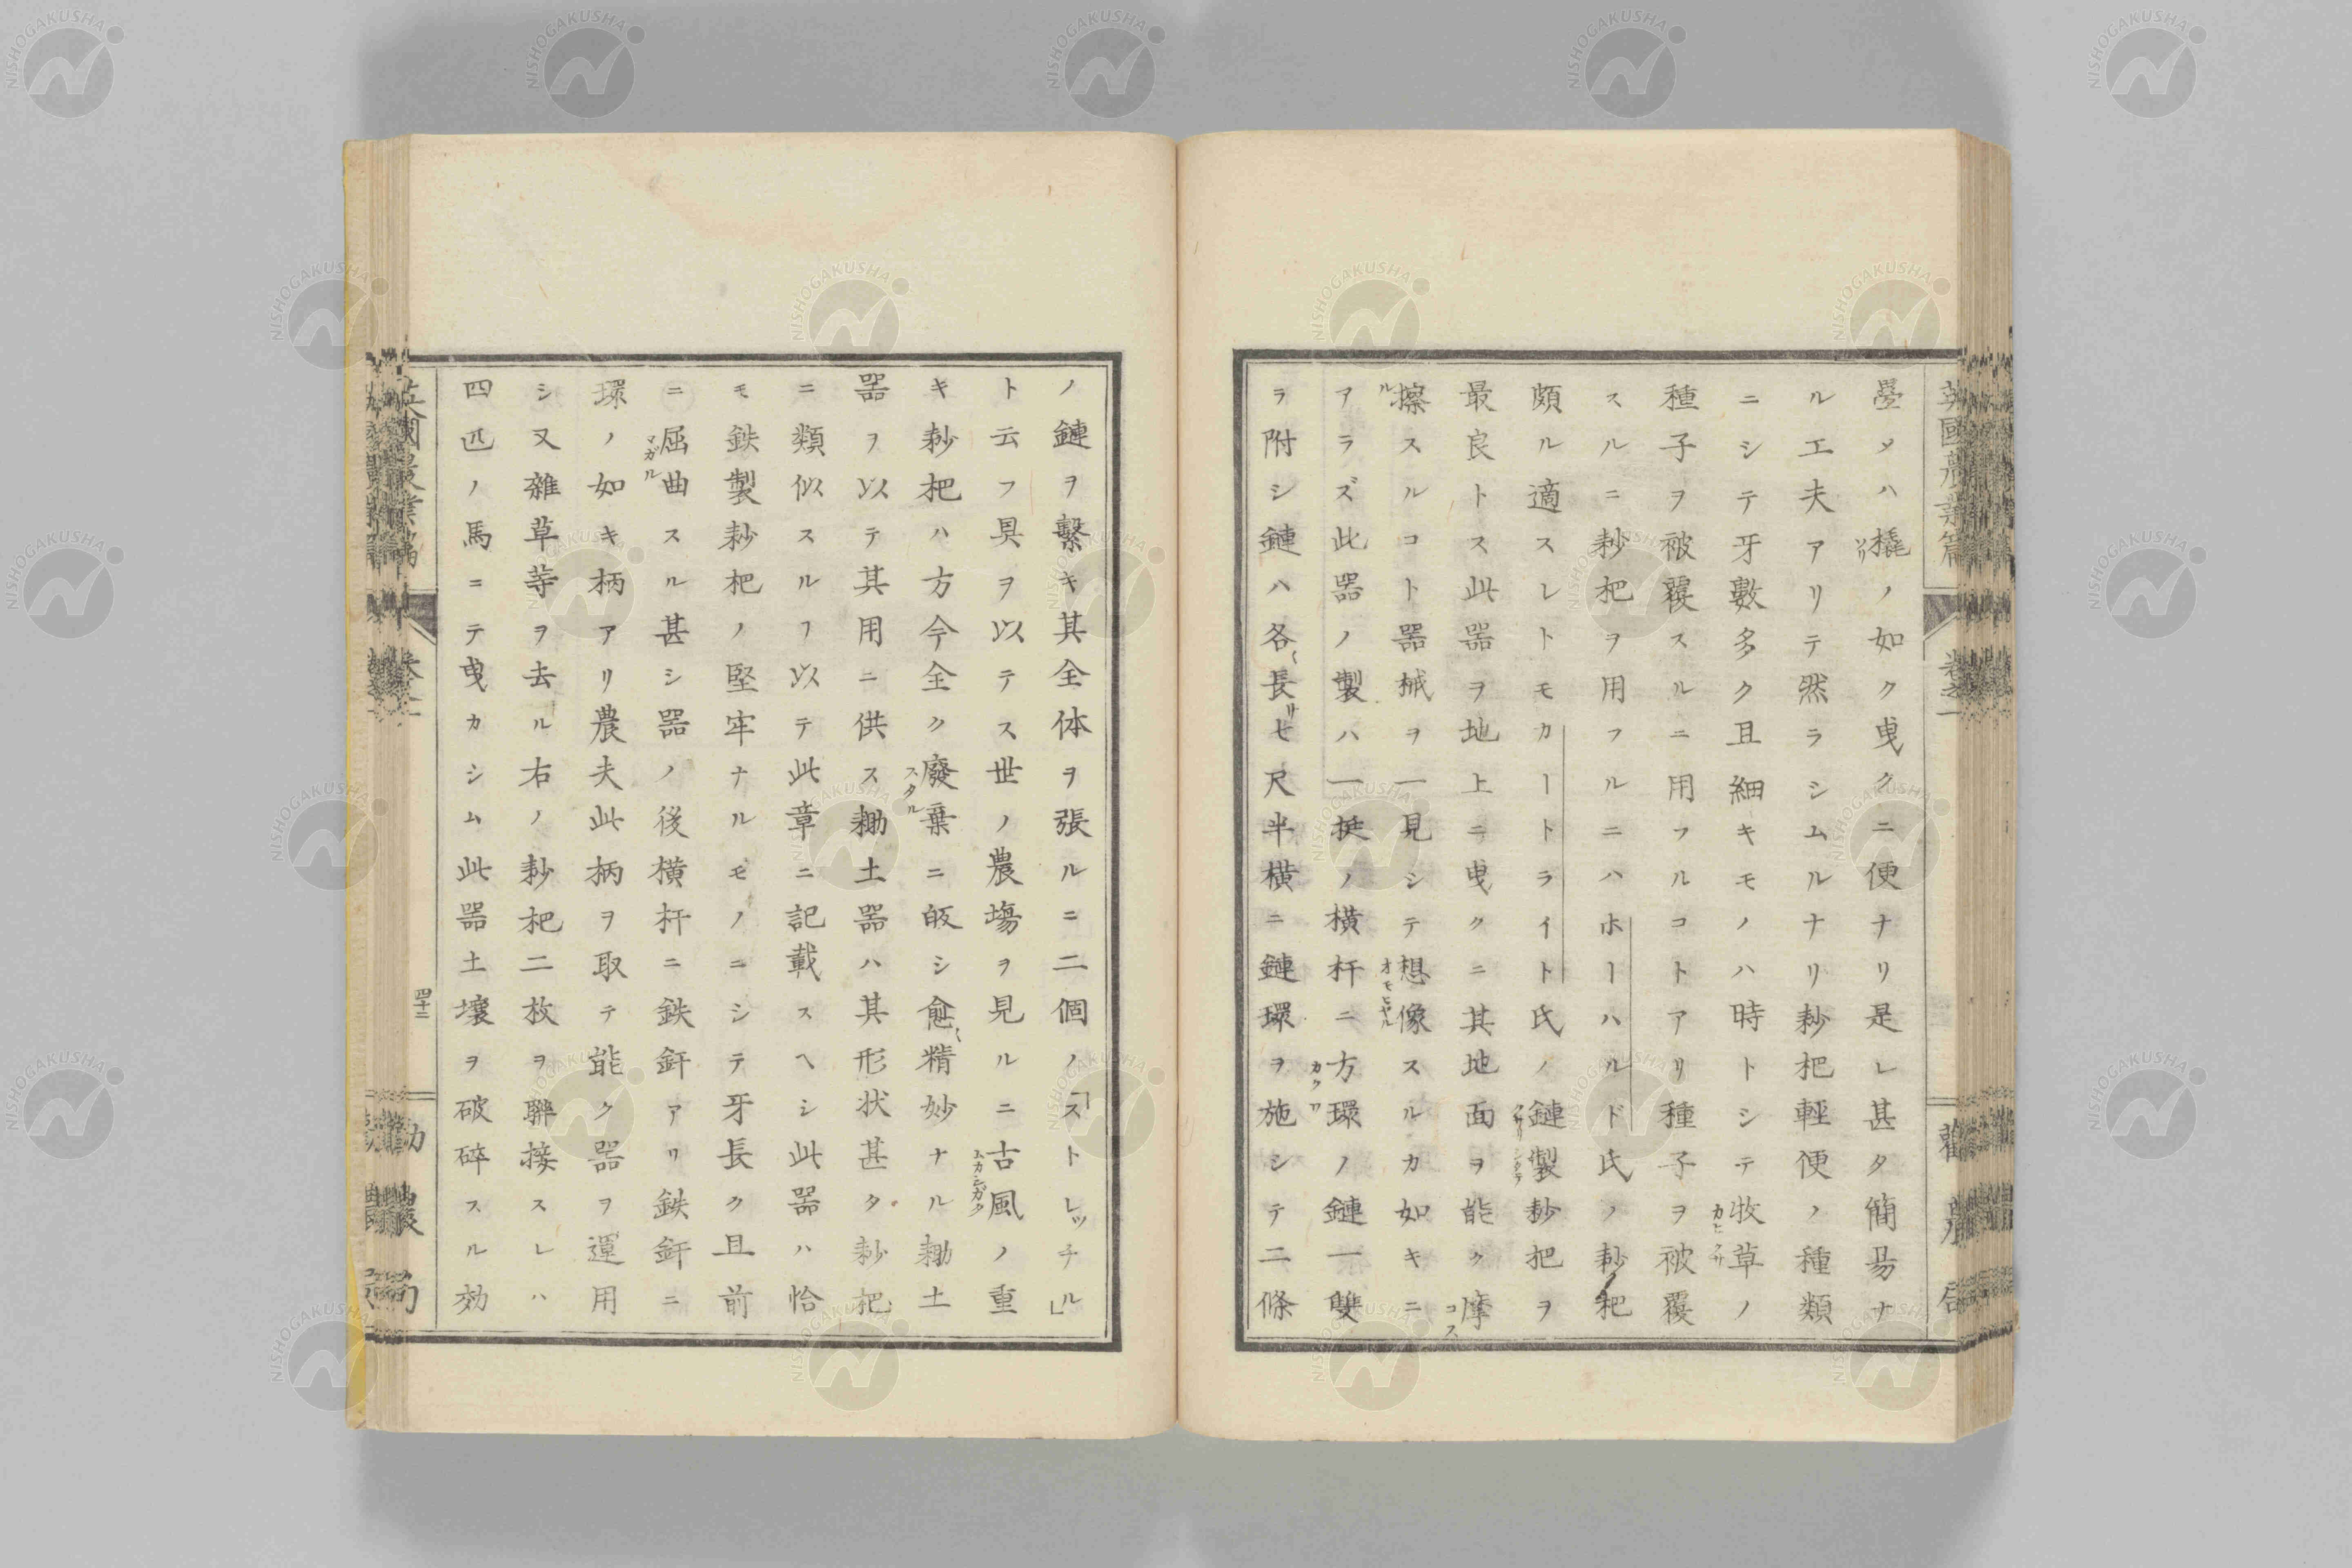 疊メハ橇ノ如ク曳クニ便ナリ是レ甚タ簡易ナ
ル工夫アリテ然ラシムルナリ耖杷輕便ノ種類
ニシテ牙數多ク且細キモノハ時トシテ收草ノ
種子ヲ被覆スルニ用フルコトアリ種子ヲ被覆
スルニ耖杷ヲ用フルニハホーハルド氏ノ耖杷
頗ル適スレトモカートライト氏ノ鏈製耖把ヲ
最良トス此噐ヲ地上ニ曳クニ其地面ヲ能ク摩
擦スルコト噐械ヲ一見シテ想像スルカ如キニ
アラズ此器ノ製ハ一挺ノ橫杆ニ方環ノ鏈一雙
ヲ附シ鏈ハ各長サ七尺半橫ニ鏈環ヲ施シテ二條
ノ鏈ヲ繫キ其全体ヲ張ルニ二個ノ「ストレッチル」
ト云フ具ヲ以テス世ノ農塲ヲ見ルニ古風ノ重
キ耖杷ハ方今全ク廢棄ニ皈シ愈精妙ナル耡土
噐ヲ以テ其用ニ供ス耡土噐ハ其形状甚タ耖杷
ニ類似スルヿ以テ此章ニ記載スヘシ此噐ハ恰
モ鉄製耖杷ノ堅牢ナルモノニシテ牙長ク且前
ニ屈曲スル甚シ噐ノ後橫杆ニ鉄釬アリ鉄釬ニ
環ノ如キ柄アリ農夫此柄ヲ取テ能ク噐ヲ運用
シ又雜草等ヲ去ル右ノ耖杷二枚ヲ聨接スレハ
四匹ノ馬ニテ曳カシム此噐土壤ヲ破碎スル効
四十二